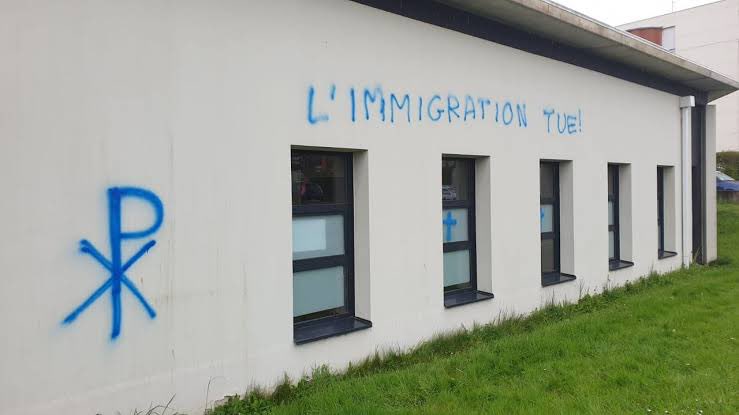 L'IMMIGRATION TUE!